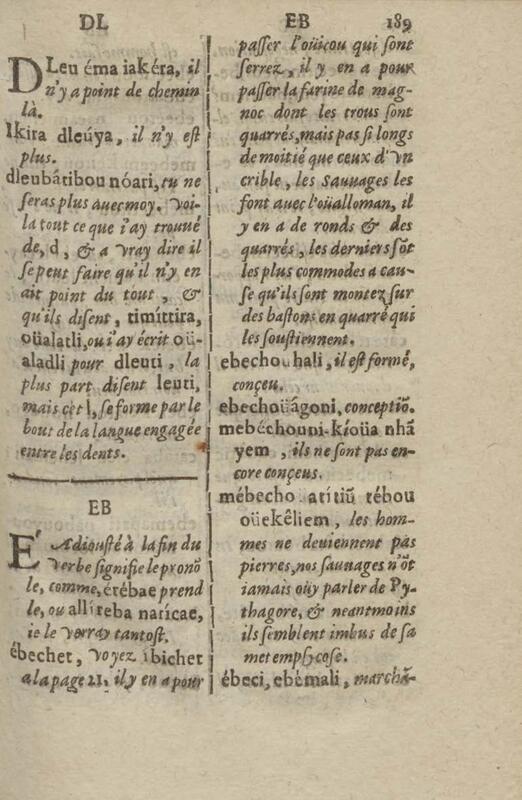 DL
DLeu éma iakéra, il
n'y a point de chemin
là.
Ikira dleúya, il n'y est
plus.
dleubátibou nóari, tu ne
seras plus auec moy. Voi-
la tout ce que i'ay trouué
de, d, & a vray dire il
se peut faire qu'il n'y en
ait point du tout, &
qu'ils disent, timíttira,
oüalatli, ou i'ay écrit oü-
aladli pour dleuti, la
plus part disent leuti,
mais cét l, se forme par le
bout de la langue engagée
entre les dents.
EB
É Adiousté à la fin du
Verbe signifie le pronõ
le, comme, érébae prend
le, ou allíreba narícae,
ie le verray tantost.
ébechet, voyez ibichet
a la page 21. il y en a pour
EB 189
passer l'oüicou qui sont
serrez, il y en a pour
passer la farine de mag-
noc dont les trous sont
quarrés, mais pas si longs
de moitié que ceux d'vn
crible, les Sauuages les
font auec l'oüalloman, il
y en a de ronds & des
quarrés, les derniers sõt
les plus commodes a cau-
se qu'ils sont montez sur
des bastons en quarré qui
les soustiennent.
ebechouhali, il est formé,
conçeu.
ebechoüágoni, conceptiõ.
mebéchouni-kíoüa nhã
yem, ils ne sont pas en-
core conçeus.
mébecho arítiũ tébou
oüekêliem, les hom-
mes ne deuiennent pas
pierres, nos sauuages n'õt
iamais oüy parler de Py-
thagore, & neantmoins
ils semblent imbus de sa
metempsycose.
ébeci, ebémali, marchã-